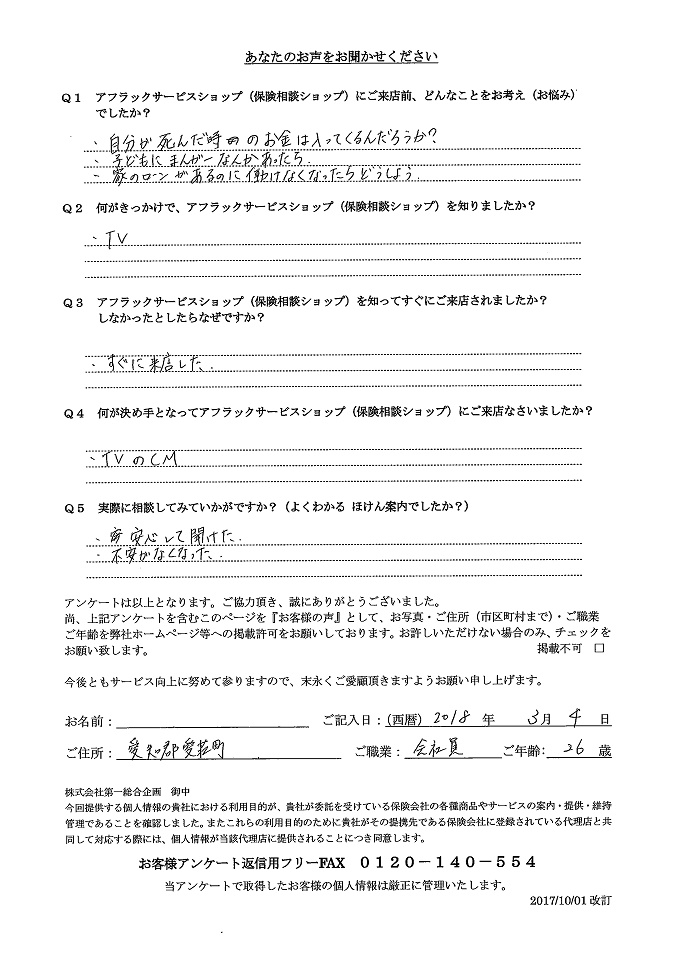 あなたのお声をお聞かせください
Q1 アフラックサービスショップ（保険相談ショップ）にご来店前、どんなことをお考え（お悩み）
でしたか？
・自分が死んだ時のお金は入ってくるんだろうか？
・子どもにまんがーなんかあったら.
・家のローンがあるのに働けなくなったらどうしよう.
Q2 何がきっかけで、アフラックサービスショップ（保険相談ショップ）を知りましたか？
・TV
Q3 アフラックサービスショップ（保険相談ショップ）を知ってすぐにご来店されましたか？
しなかったとしたらなぜですか？
・すぐに来店した.
Q4 何が決め手となってアフラックサービスショップ（保険相談ショップ）にご来店なさいましたか？
・TVのCM
Q5 実際に相談してみていかがですか？（よくわかる ほけん案内でしたか？）
・安心して聞けた.
・不安がなくなった.
アンケートは以上となります。ご協力頂き、誠にありがとうございました。
尚、上記アンケートを含むこのページを『お客様の声』として、お写真・ご住所（市区町村まで）・ご職業
ご年齢を弊社ホームページ等への掲載許可をお願いしております。お許しいただけない場合のみ、チェックを
お願い致します。 掲載不可 □
今後ともサービス向上に努めて参りますので、末永くご愛顧頂きますようお願い申し上げます。
お名前： ご記入日：（西暦） 2018 年 3月 4 日
ご住所： 愛知郡愛荘町 ご職業： 会社員 ご年齢： 26 歳
株式会社第一総合企画 御中
今回提供する個人情報の貴社における利用目的が、貴社が委託を受けている保険会社の各種商品やサービスの案内・提供・維持
管理であることを確認しました。またこれらの利用目的のために貴社がその提携先である保険会社に登録されている代理店と共
同して対応する際には、個人情報が当該代理店に提供されることにつき同意します。
お客様アンケート返信用フリーFAX 0120－140－554
当アンケートで取得したお客様の個人情報は厳正に管理いたします。
2017/10/01 改訂